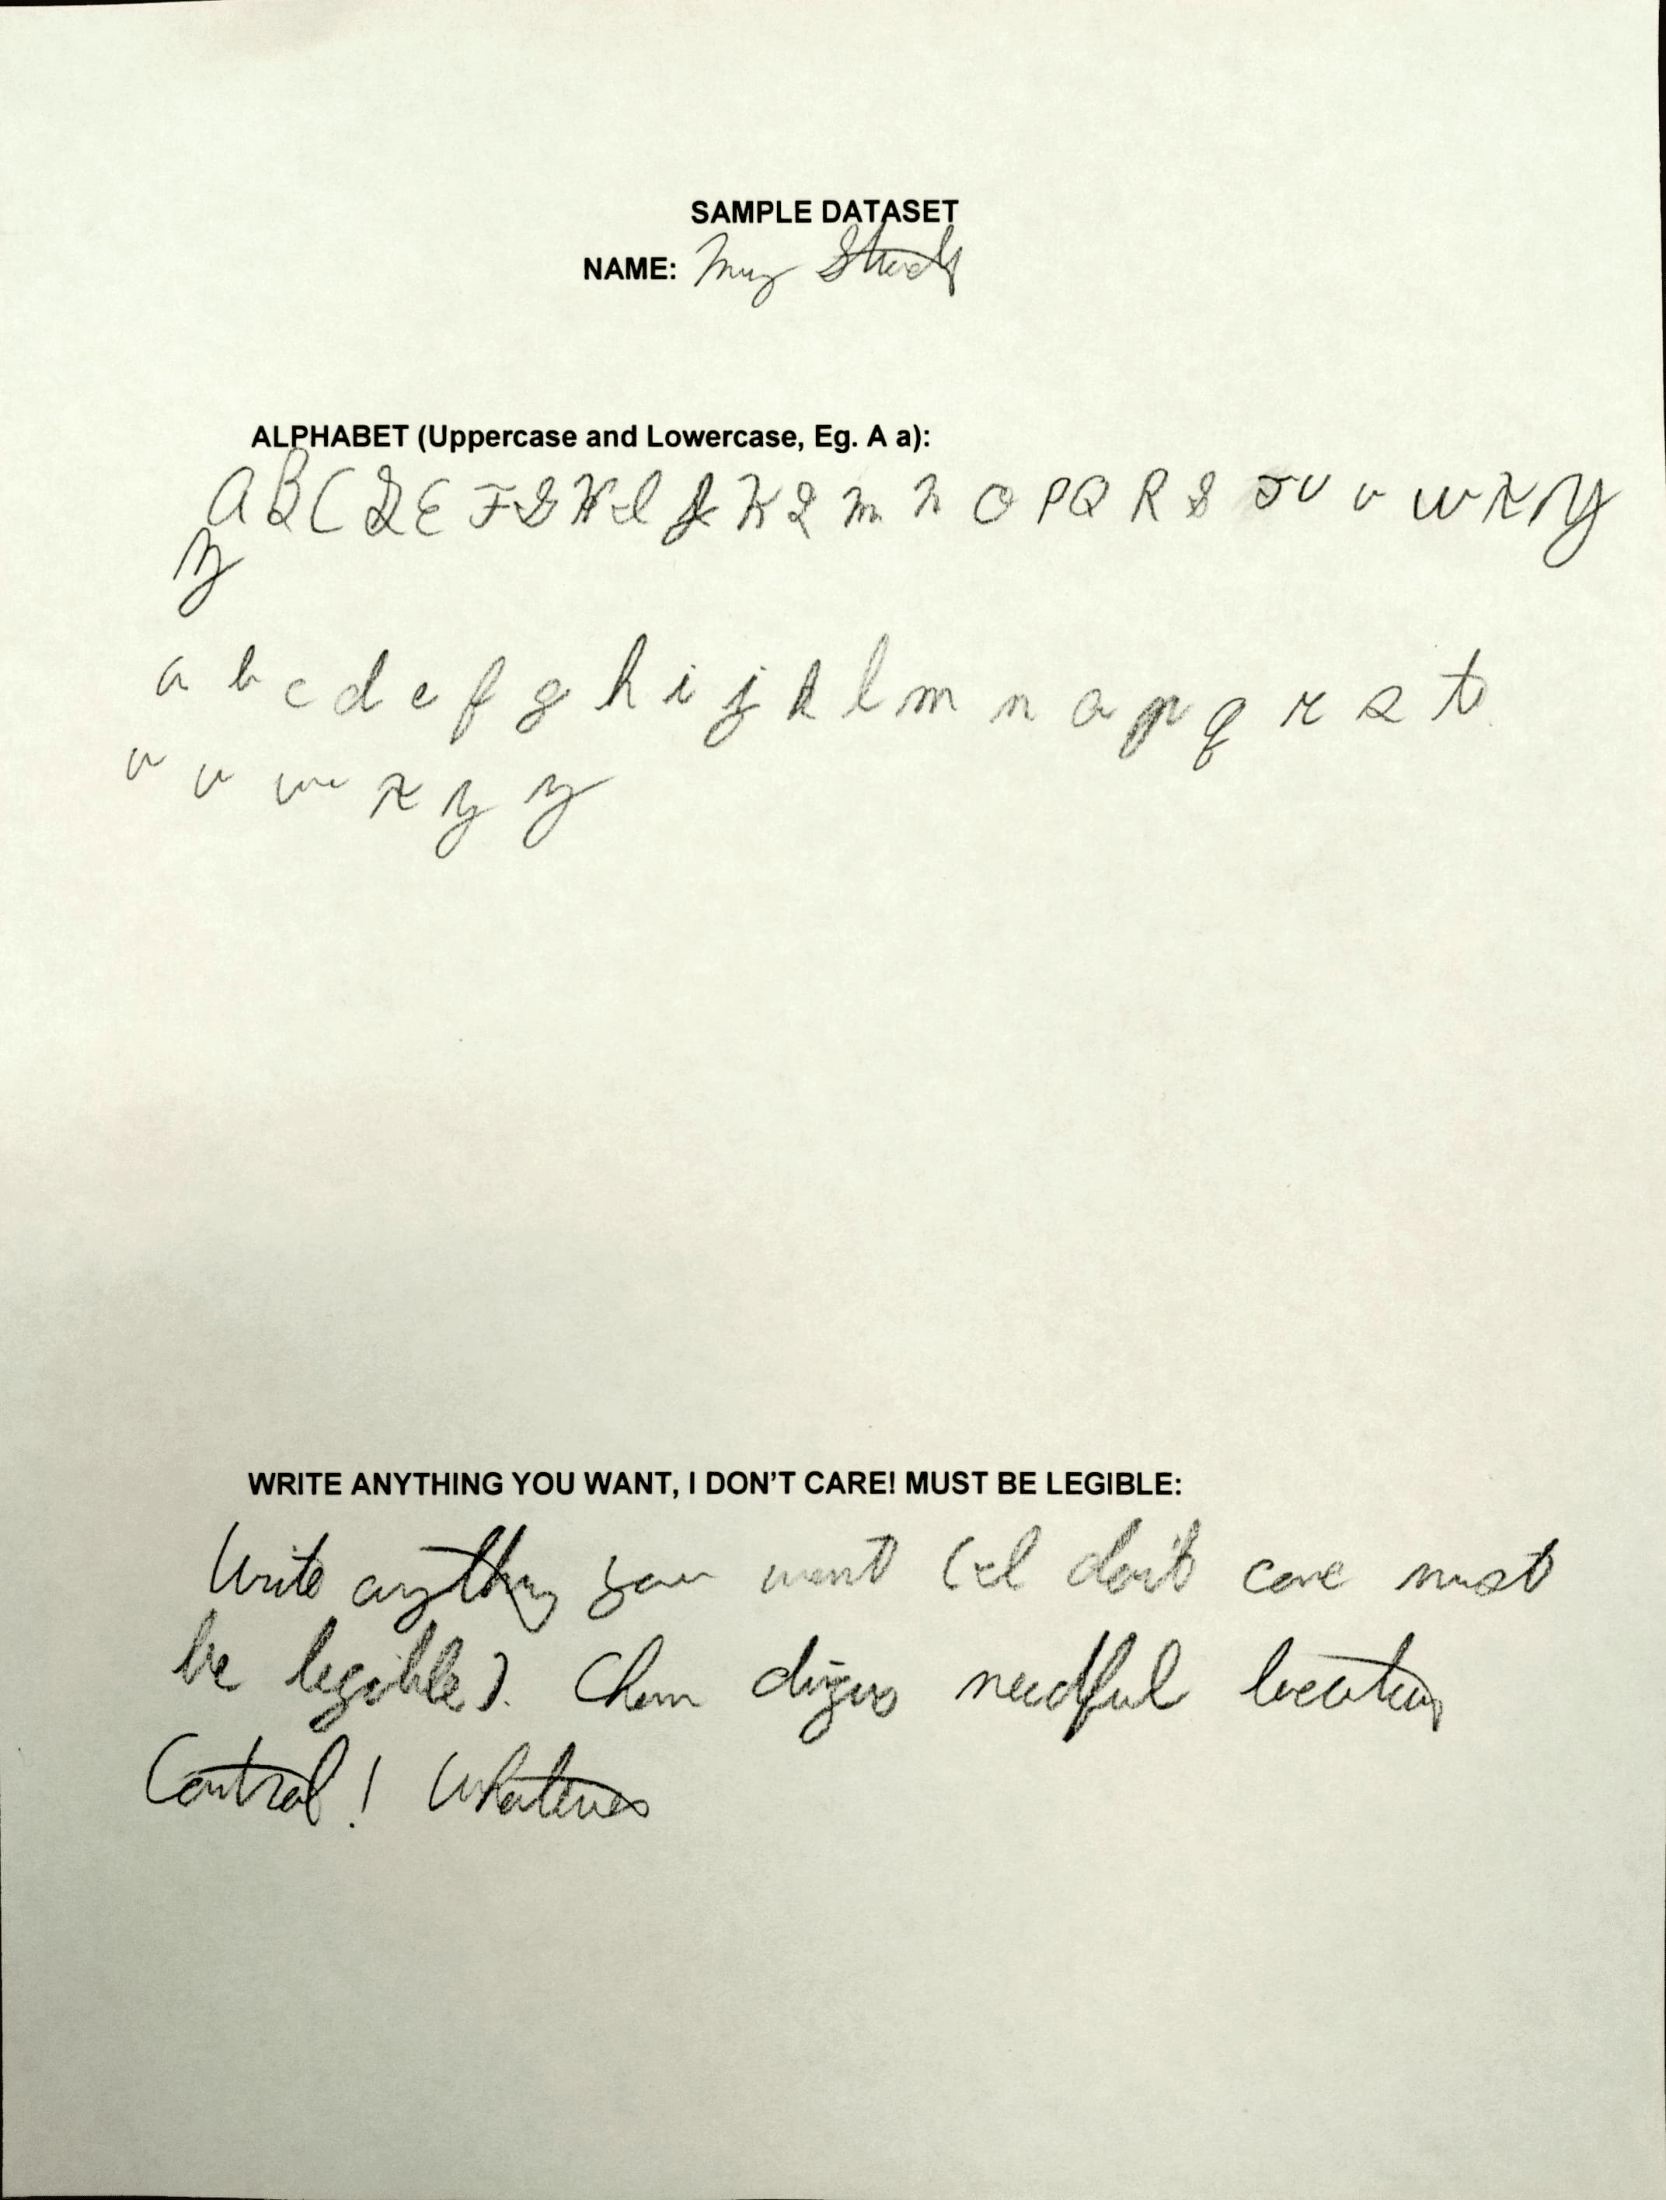 SAMPLE DATASET
NAME: My
ALPHABET (Uppercase and Lowercase, Eg. A a):
A B C D E F G H I J K L M N O P Q R S T U V W X Y
Z
a b c d e f g h i j k l m n o p q r s t
u v w x y z
WRITE ANYTHING YOU WANT, I DON'T CARE! MUST BE LEGIBLE:
Write anything you want (I don't care must
be legible). needful location
Control! Whatever